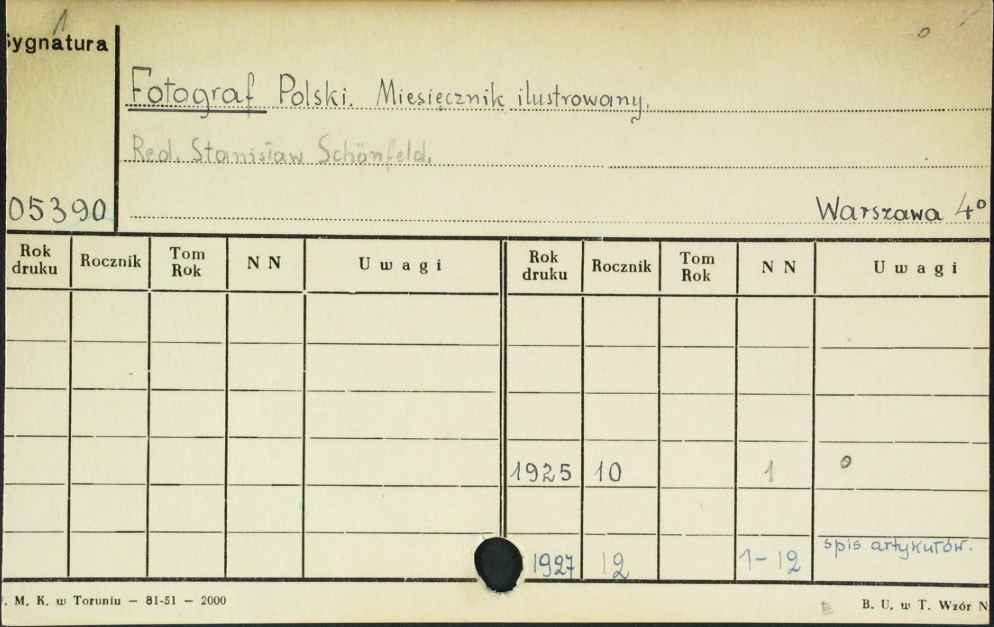 1
Sygnatura
o
Fotograf Polski. Miesięcznik ilustrowany.
Red. Stanisław Schönfeld.
05390
Warszawa 4°
Rok druku Rocznik Tom Rok N N Uwagi Rok druku Rocznik Tom Rok N N Uwagi
1925 10 1 o
1927 12 1-12 spis artykułów.
. M. K. w Toruniu — 81-51 — 2000
B. U. w T. Wzór N